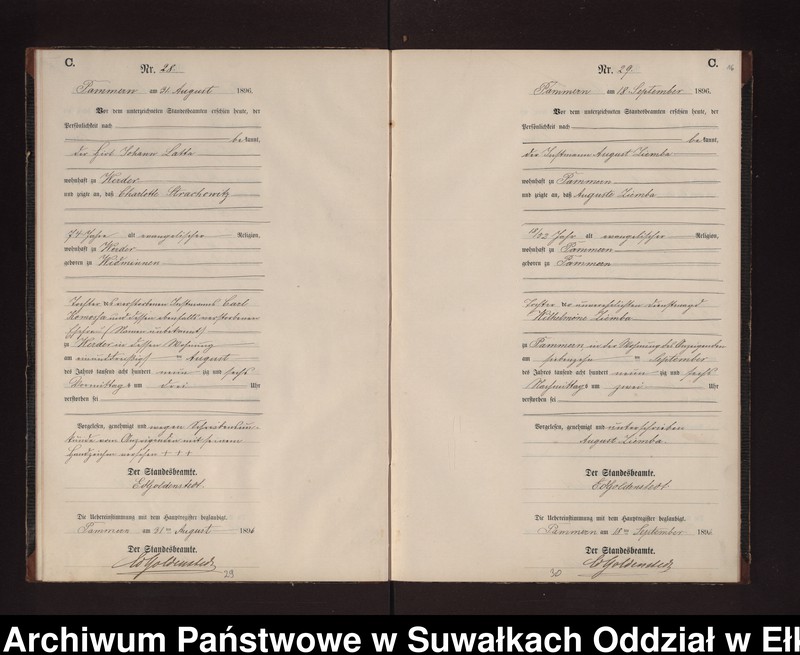 C.
Nr. 28.
Tammern am 31 August 1896.
Vor dem unterzeichneten Standesbeamten erschien heute, der
Persönlichkeit nach
bekannt,
Johann Latta
wohnhaft zu Werder
und zeigte an, daß Charlotte Strachowitz
74 Jahre alt evangelischer Religion,
wohnhaft zu Werder
geboren zu Widminnen
Tochter des verstorbenen Instmanns Carl
Komossa und dessen ebenfalls verstorbenen
Ehefrau (Namen unbekannt)
zu Werder in dessen Wohnung
am einunddreißigsten August
des Jahres tausend acht hundert neunzig und sechs
Vormittags um drei Uhr
verstorben sei
Vorgelesen, genehmigt und wegen Schreibensun-
kunde vom Anzeigenden mit seinem
Handzeichen versehen + + +
Der Standesbeamte.
EdGoldenstedt.
Die Uebereinstimmung mit dem Hauptregister beglaubigt.
Tammern am 31ten August 1896
Der Standesbeamte.
EdGoldenstedt
29
C.
Nr. 29.
Tammern am 18 September 1896.
Vor dem unterzeichneten Standesbeamten erschien heute, der
Persönlichkeit nach
bekannt,
der Instmann August Ziemba
wohnhaft zu Tammern
und zeigte an, daß Auguste Ziemba
/12 Jahr alt evangelischer Religion,
wohnhaft zu Tammern
geboren zu Tammern
Tochter der unverehelichten Dienstmagd
Wilhelmine Ziemba
zu Tammern in der Wohnung des Anzeigenden
am siebenzehn ten September
des Jahres tausend acht hundert neunzig und sechs
Nachmittags um zwei Uhr
verstorben sei
Vorgelesen, genehmigt und unterschrieben
August Ziemba
Der Standesbeamte.
EdGoldenstedt.
Die Uebereinstimmung mit dem Hauptregister beglaubigt.
Tammern am 18ten September 1896
Der Standesbeamte.
EdGoldenstedt
30
Archiwum Państwowe w Suwałkach Oddział w Ełk